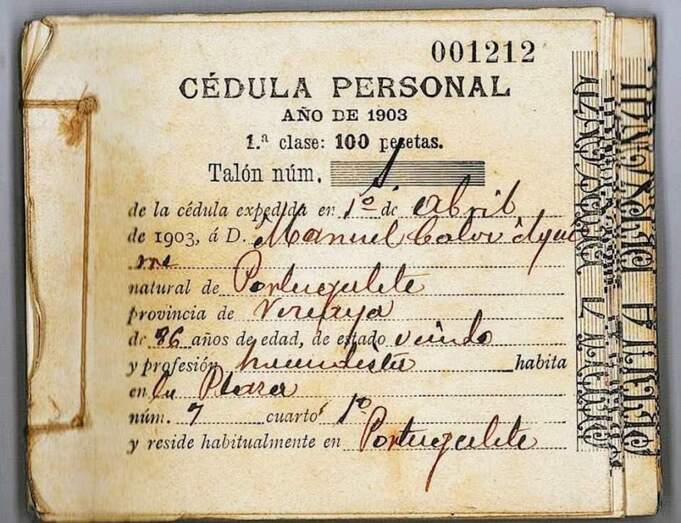 001212
CÉDULA PERSONAL
AÑO DE 1903
1.ª clase: 100 pesetas.
Talón núm. 1
de la cédula expedida en 1º de Abril
de 1903, á D. Manuel Calvo Aguir
rre
natural de Portugalete
provincia de Vizcaya
de 86 años de edad, de estado viudo
y profesión habita
en la Plaza
núm. 7 cuarto 1º
y reside habitualmente en Portugalete